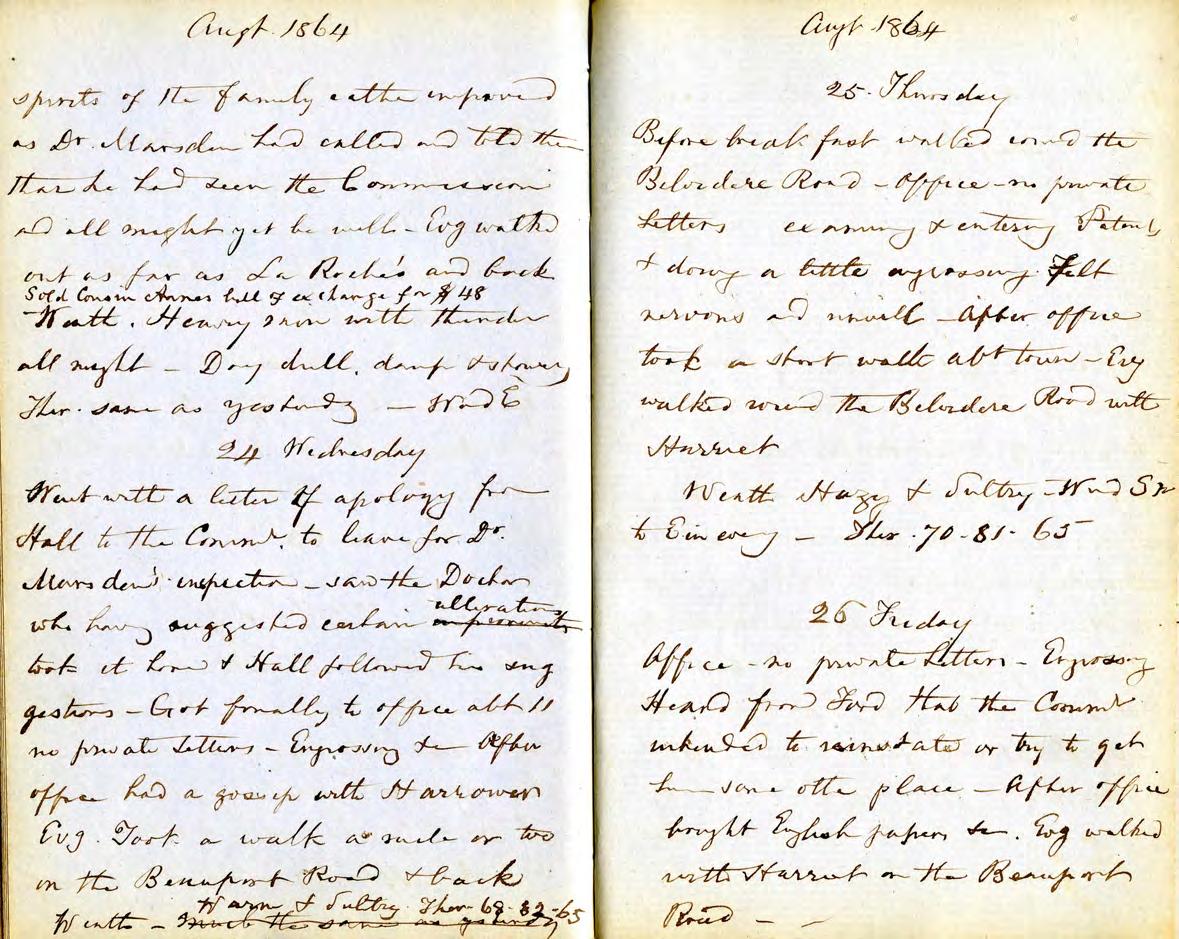 Augt. 1864
spirits of the family rather improved
as Dr. Marsden had called and told them
that he had seen the Commission
and all might yet be well - Evg walked
out as far as La Roche's and back
Sold Cousin Annas bill of exchange for $48
Weath. Heavy rain with thunder
all night - Day dull, damp & showery
Ther. same as yesterday - Wind E
24 Wednesday
Went with a letter of apology from
Hall to the Commr. to leave for Dr.
Marsden's inspection - saw the Doctor
who having suggested certain
alterations
took it home & Hall followed his sug
gestions - Got finally to office abt 11
no private Letters - Engrossing &c After
office had a gossip with Harrower
Evg. Took a walk a mile or two
on the Beauport Road & back
Warm & Sultry. Ther. 68-82-65
Weath - much the same as yesterday
Augt 1864
25. Thursday
Before break fast walked round the
Belvedere Road - Office - no private
Letters examing & entering Patents
& doing a little engrossing. Felt
nervous and unwell - After office
took a short walk abt town - Evg
walked round the Belvedere Road with
Harriet
Weath Hazy & Sultry - Wind SW
to E in eveng - Ther. 70-81-65
26 Friday
Office - no private Letters - Engrossing
Heard from Ford that the Commr
intended to reinstate or try to get
him some other place - After office
bought English papers &c. Evg walked
with Harriet on the Beauport
Road -